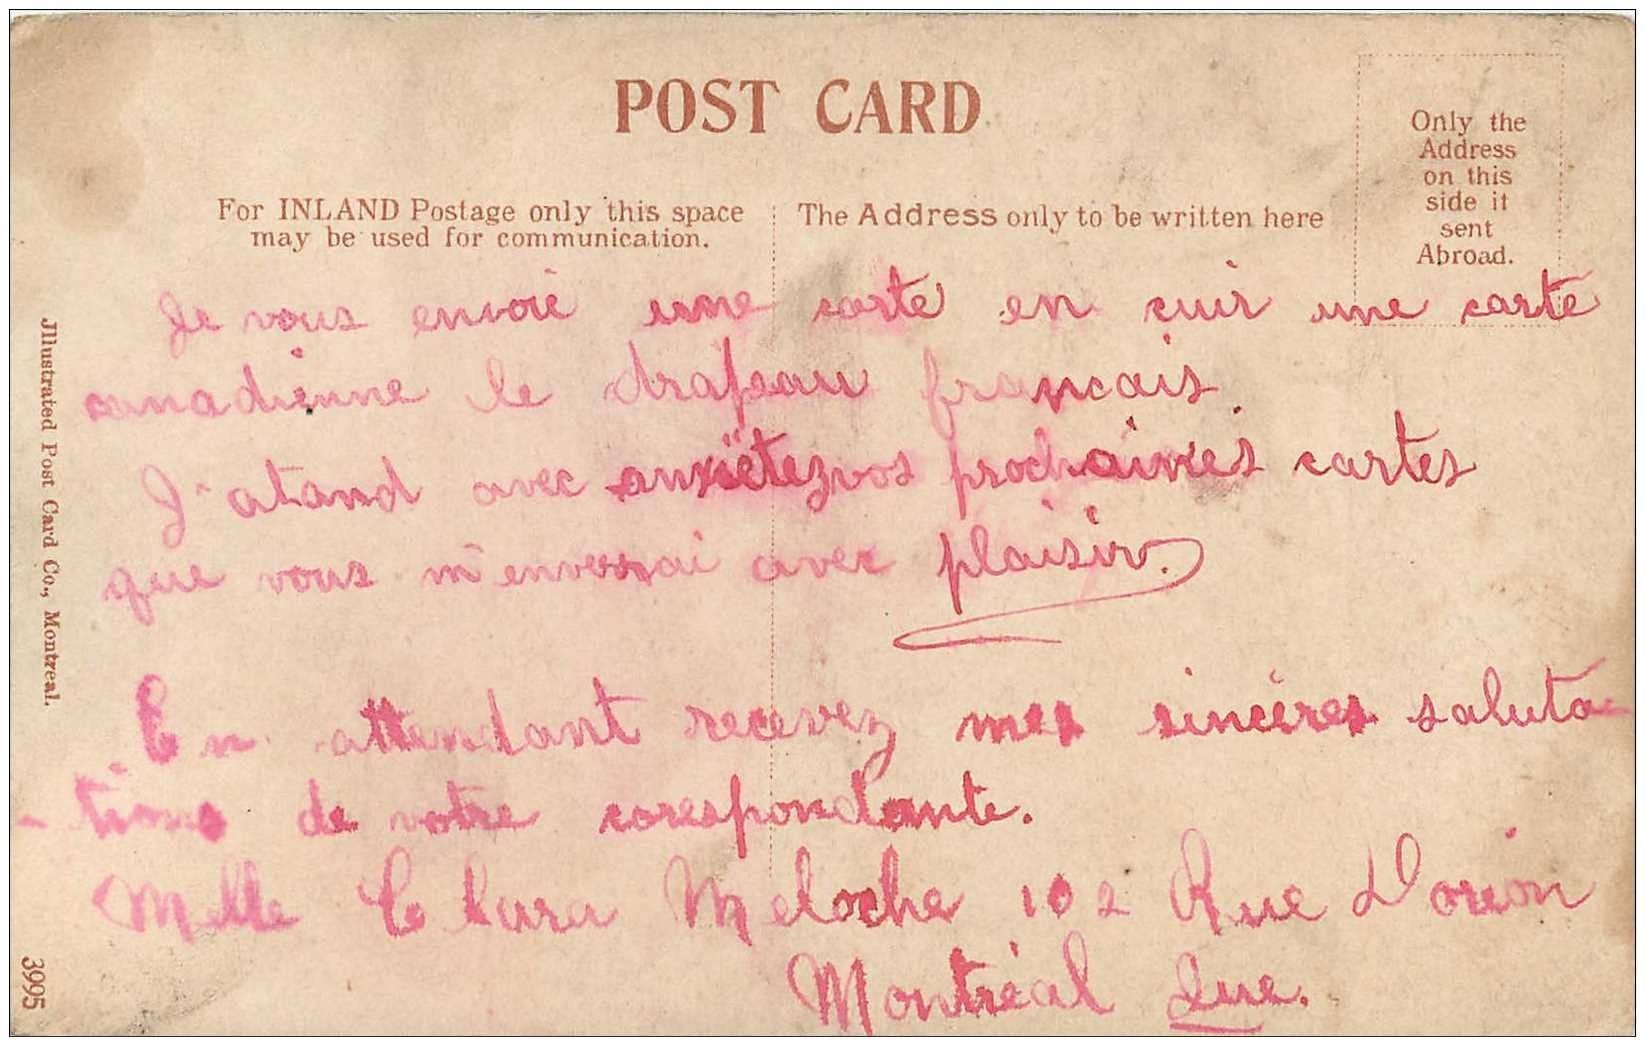 POST CARD
Only the
Address
on this
side if
sent
Abroad.
For INLAND Postage only this space
may be used for communication.
The Address only to be written here
Je vous envoié une carte en cuir une carte
canadienne le drapeau francais.
J'atand avec anxiètez vos prochaines cartes
que vous m'enverrai avec plaisir.
En attendant recevez mes sincères saluta-
-tions de votre corespondante.
Melle Clara Meloche 102 Rue Dorion
Montréal Que.
Illustrated Post Card Co., Montreal.
3995